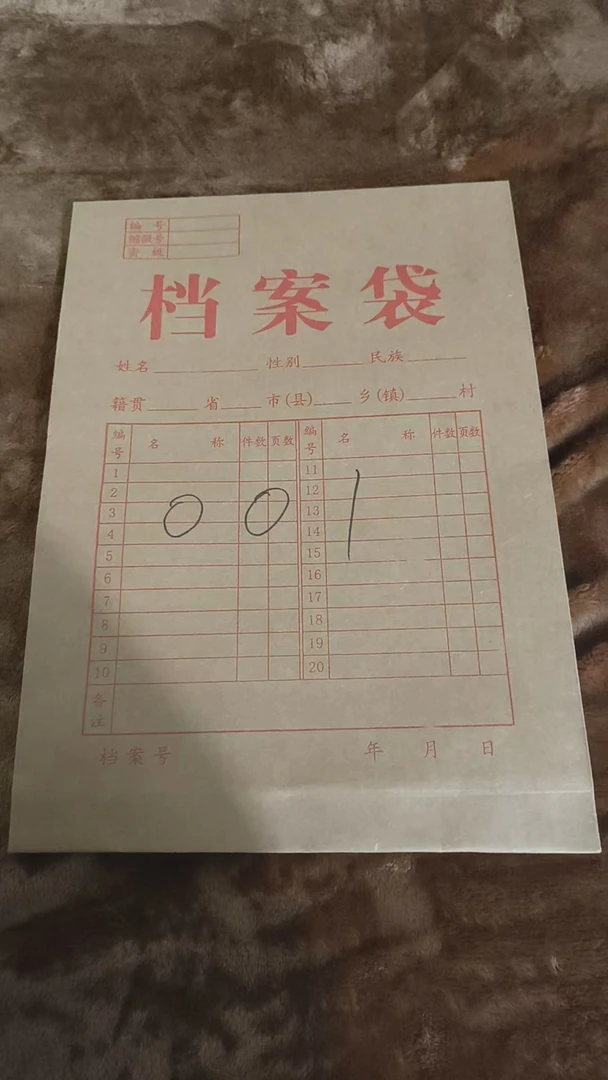 编 号
缩微号
密 级
档案袋
姓名 性别 民族
籍贯 省 市(县) 乡(镇) 村
编号 名 称 件数 页数 编号 名 称 件数 页数
1 11
2 12
3 13
4 14
0 0 1
5 15
6 16
7 17
8 18
9 19
10 20
备注
档案号 年 月 日